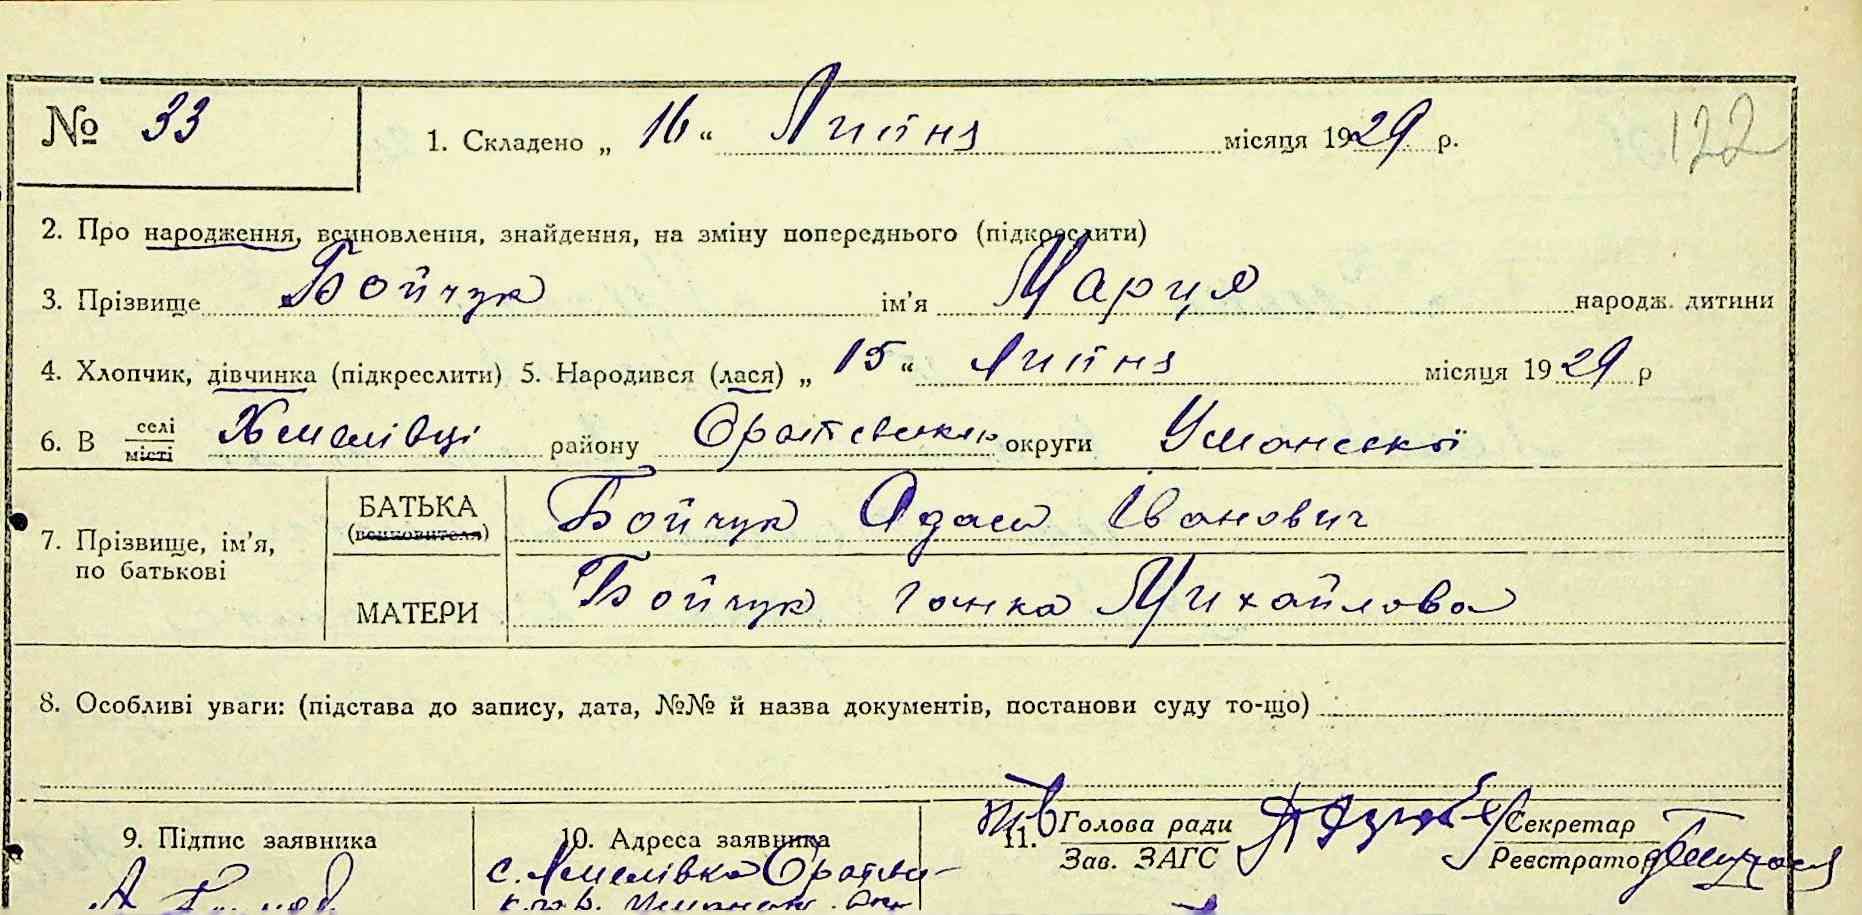 № 33
1. Складено „ 16 “ Липня місяця 1929 р.
122
2. Про народження, всиновлення, знайдення, на зміну попереднього (підкреслити)
3. Прізвище Бойчук ім'я Марця народж. дитини
4. Хлопчик, дівчинка (підкреслити) 5. Народився (лася) „ 15 “ Липня місяця 1929 р
6. В селі місті Хмелівці району округи Уманської
7. Прізвище, ім'я, по батькові
БАТЬКА (всиновителя) Бойчук Адам Іванович
МАТЕРИ Бойчук Ганка Михайлова
8. Особливі уваги: (підстава до запису, дата, №№ й назва документів, постанови суду то-що)
9. Підпис заявника
10. Адреса заявника
с. Хмелівка
11. Голова ради
Зав. ЗАГС
Секретар
Реєстратор